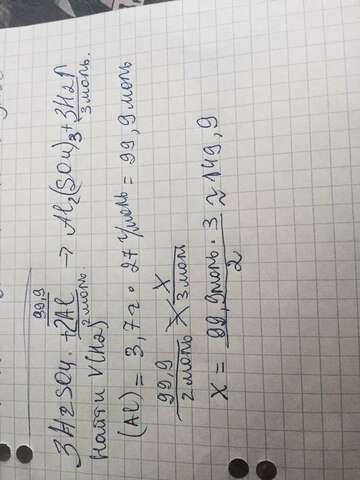 99,9
3H2SO4 + 2Al → Al2(SO4)3 + 3H2↑
2 моль 3 моль.
Найти V(H2)
(Al) = 3,7 г · 27 г/моль = 99,9 моль
99,9 X
2 моль 3 моль
X = 99,9 моль · 3 ≈ 149,9
2